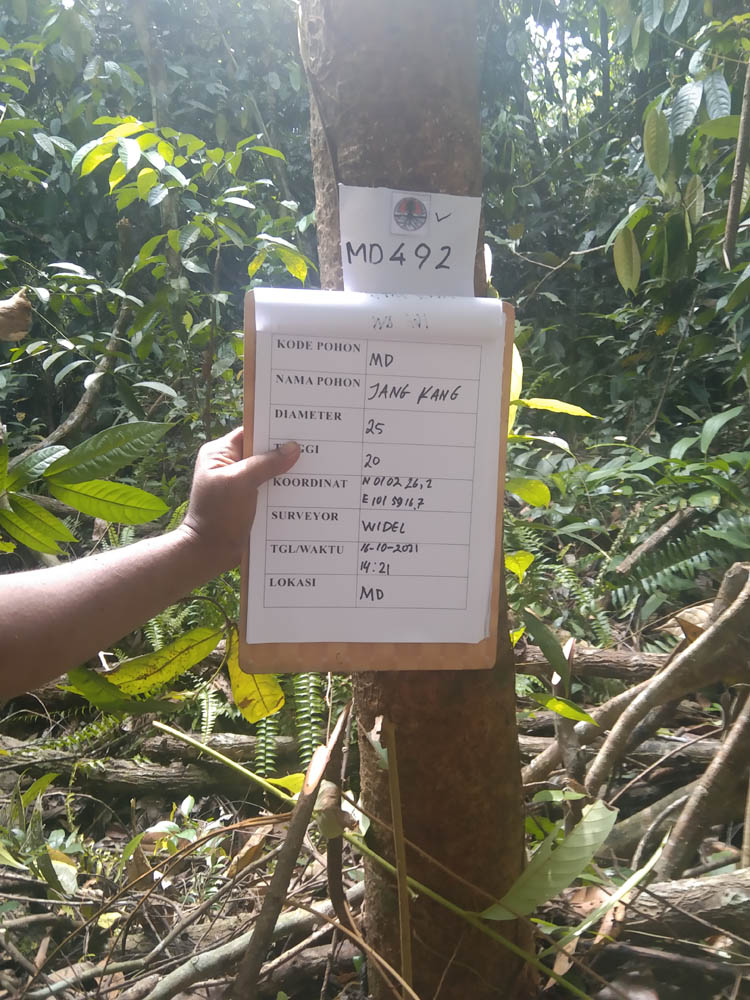 MD492
KODE POHON MD
NAMA POHON JANG KANG
DIAMETER 25
TINGGI 20
KOORDINAT N 01 02 26,2
E 101 59 16,7
SURVEYOR WIDEL
TGL/WAKTU 16-10-2021
14:21
LOKASI MD